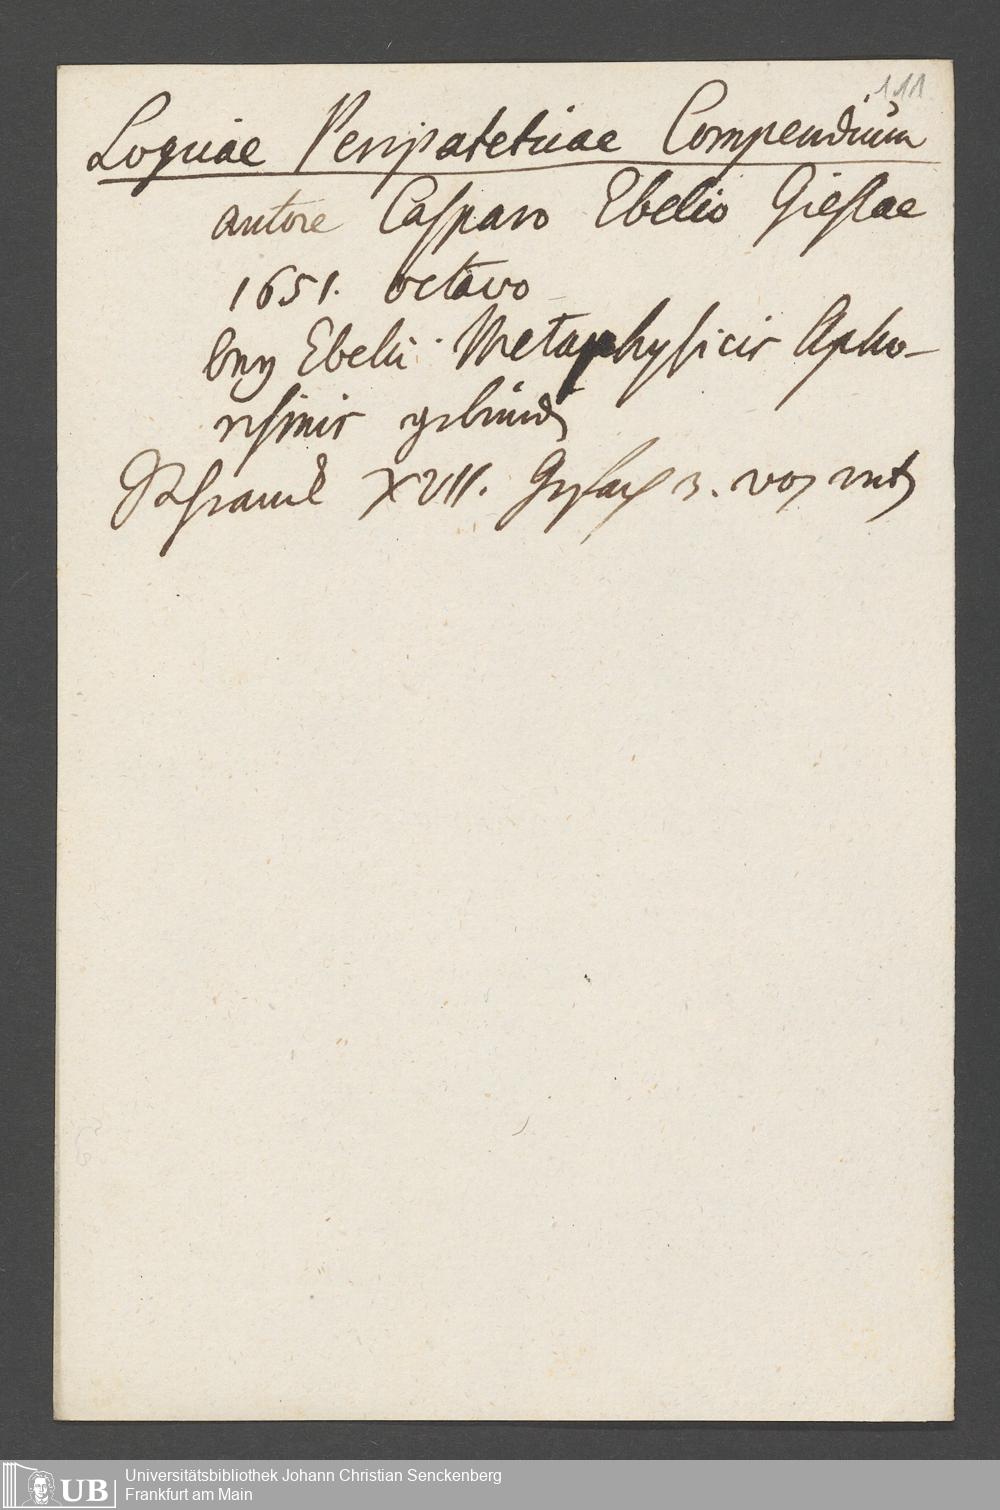 111
Logicae Peripateticae Compendium
autore Casparo Ebelio Giessae
1651. octavo
bey Ebelii Metaphysicis Apho-
rismis gebunden
Schranck XVII. Gefach 3. von unten
Universitätsbibliothek Johann Christian Senckenberg
Frankfurt am Main
UB